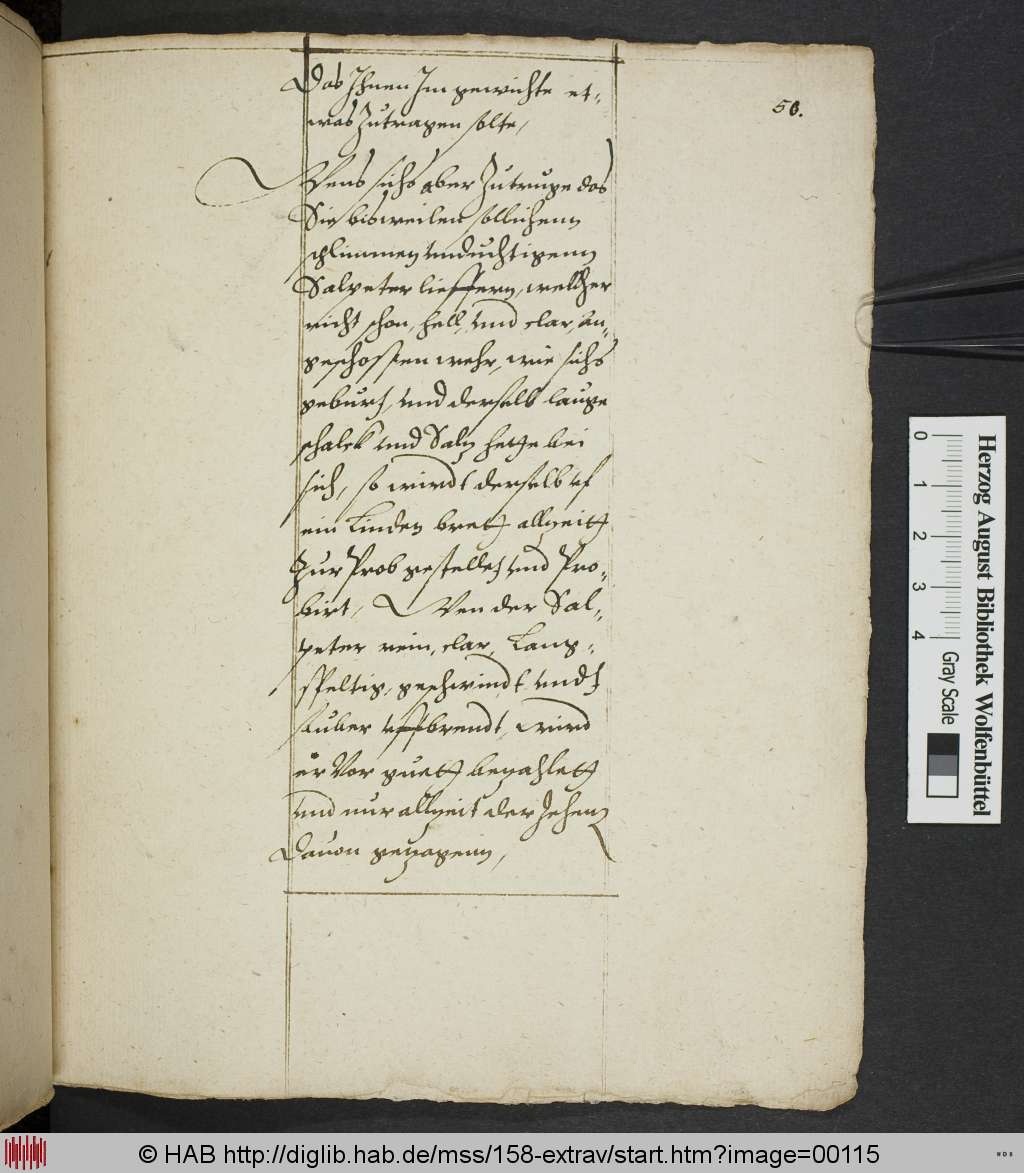 50.
Das Ihnen Im gewichte et-
was Zutragen solte,
Wens sichs aber Zutruge das
Sie bisweilen sollichenn
schlimmen vnduchtigenn
Salpeter lieffern, welcher
nicht schon, hell, vnd clar, an-
geschossen wehr, wie sichs
geburt, vnd derselb lauge
schalck vnd Saltz hette bei
sich, so wirdt derselb vf
ein Linden brett allzeitt
Zur Prob gestellet vnd Pro-
birt, Wen der Sal-
peter rein, clar, Lang-
speltig, geschwindt vndt
sauber vffbrendt, wird
er Vor guett bezahlett
vnd nur allzeit der Zehent
dauon gezogenn,
Herzog August Bibliothek Wolfenbüttel
0 1 2 3 4
Gray Scale
© HAB http://diglib.hab.de/mss/158-extrav/start.htm?image=00115